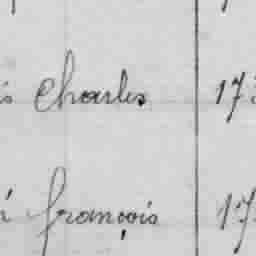 Charles 17
françois 17